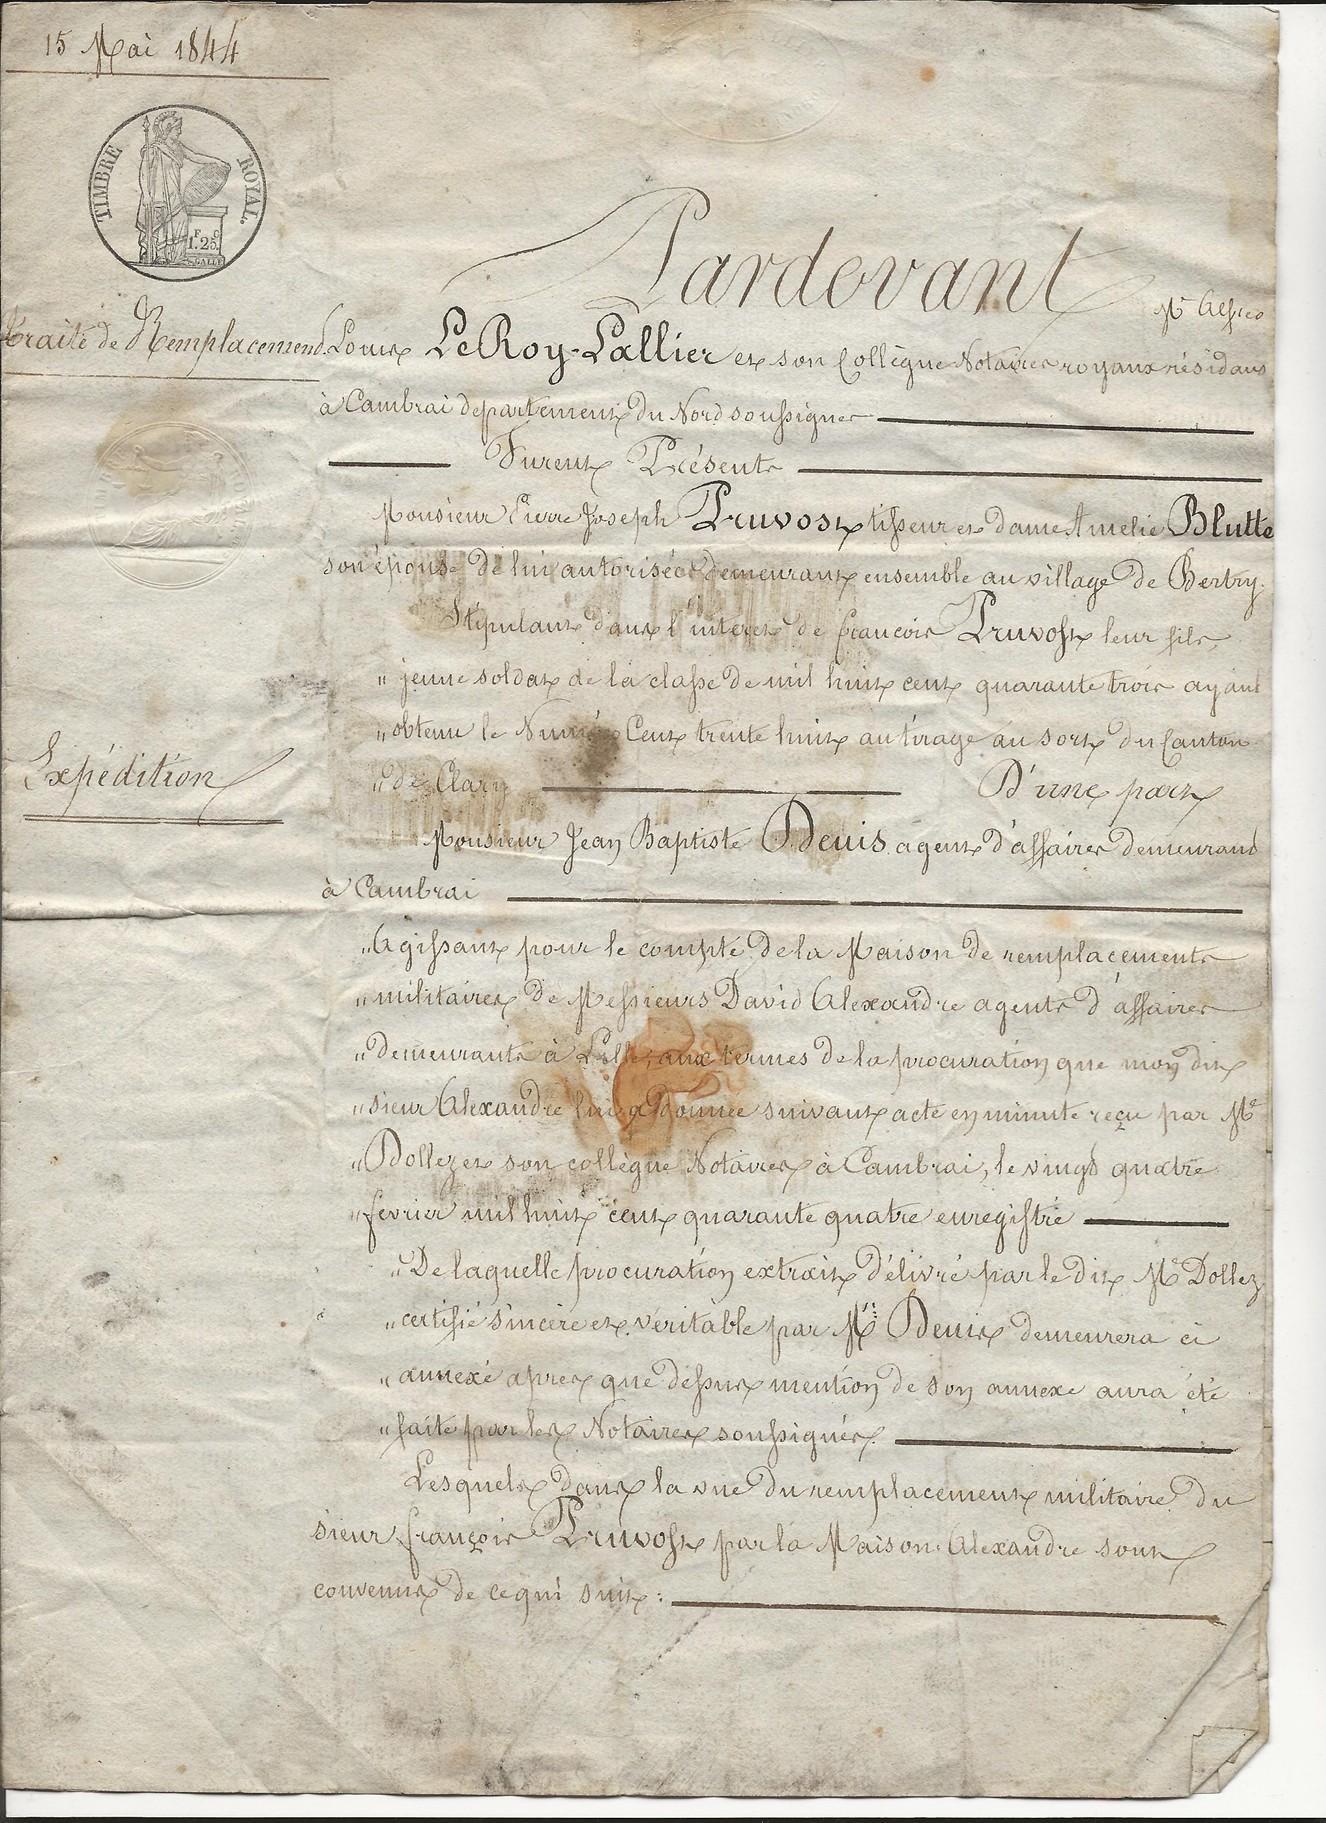 15 Mai 1844
TIMBRE ROYAL.
F C
1.25
Pardevant
Me
Traité de Remplacement
Louis LeRoy-Lallier et son Collègue Notaires royaux résidans
à Cambrai département du Nord soussignés
Furent Présents
Monsieur Pierre Joseph Pruvost tisseur et dame Amelie Blutte
son épouse de lui autorisée demeurant ensemble au village de Bertry.
Stipulant dans l'intérêt de françois Pruvost leur fils,
" jeune soldat de la classe de mil huit cent quarante trois ayant
" obtenu le Numéro Cent trente huit au tirage au sort du Canton
" de Clary D'une part
Expédition
Monsieur Jean Baptiste Denis agent d'affaires demeurand
à Cambrai
" Agissant pour le compte de la Maison de remplacements
" militaires de Messieurs David Alexandre agents d'affaires
" demeurants à Lille, aux termes de la procuration que mon dit
" sieur Alexandre lui a donnée suivant acte en minute reçu par Me
" Dollez et son collègue Notaires à Cambrai, le vingt quatre
" fevrier mil huit cent quarante quatre enregistré
" De laquelle procuration extrait délivré par le dit Me Dollez
" certifié sincère et véritable par Mr Denis demeurera ci
" annexé apres que dessus mention de son annexe aura été
" faite par les Notaires soussignés.
Lesquels dans la vue du remplacement militaire du
sieur françois Pruvost par la Maison Alexandre sont
convenus de ce qui suit :